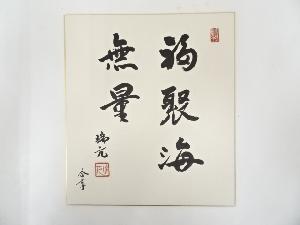 福聚海
無量
瑞光